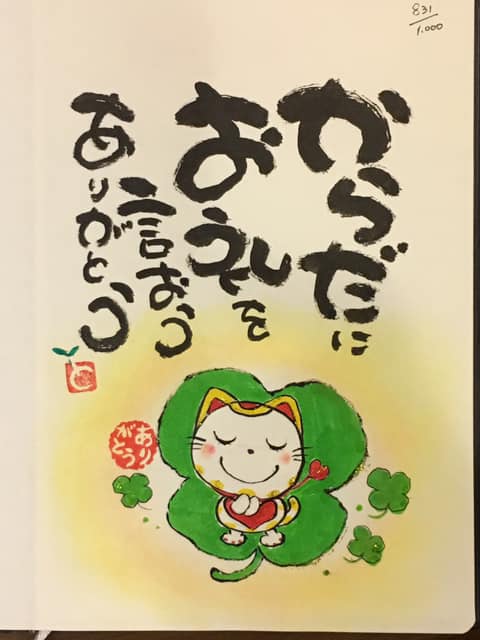 831
1.000
からだに
お礼を
言おう
ありがとう
ありがとう